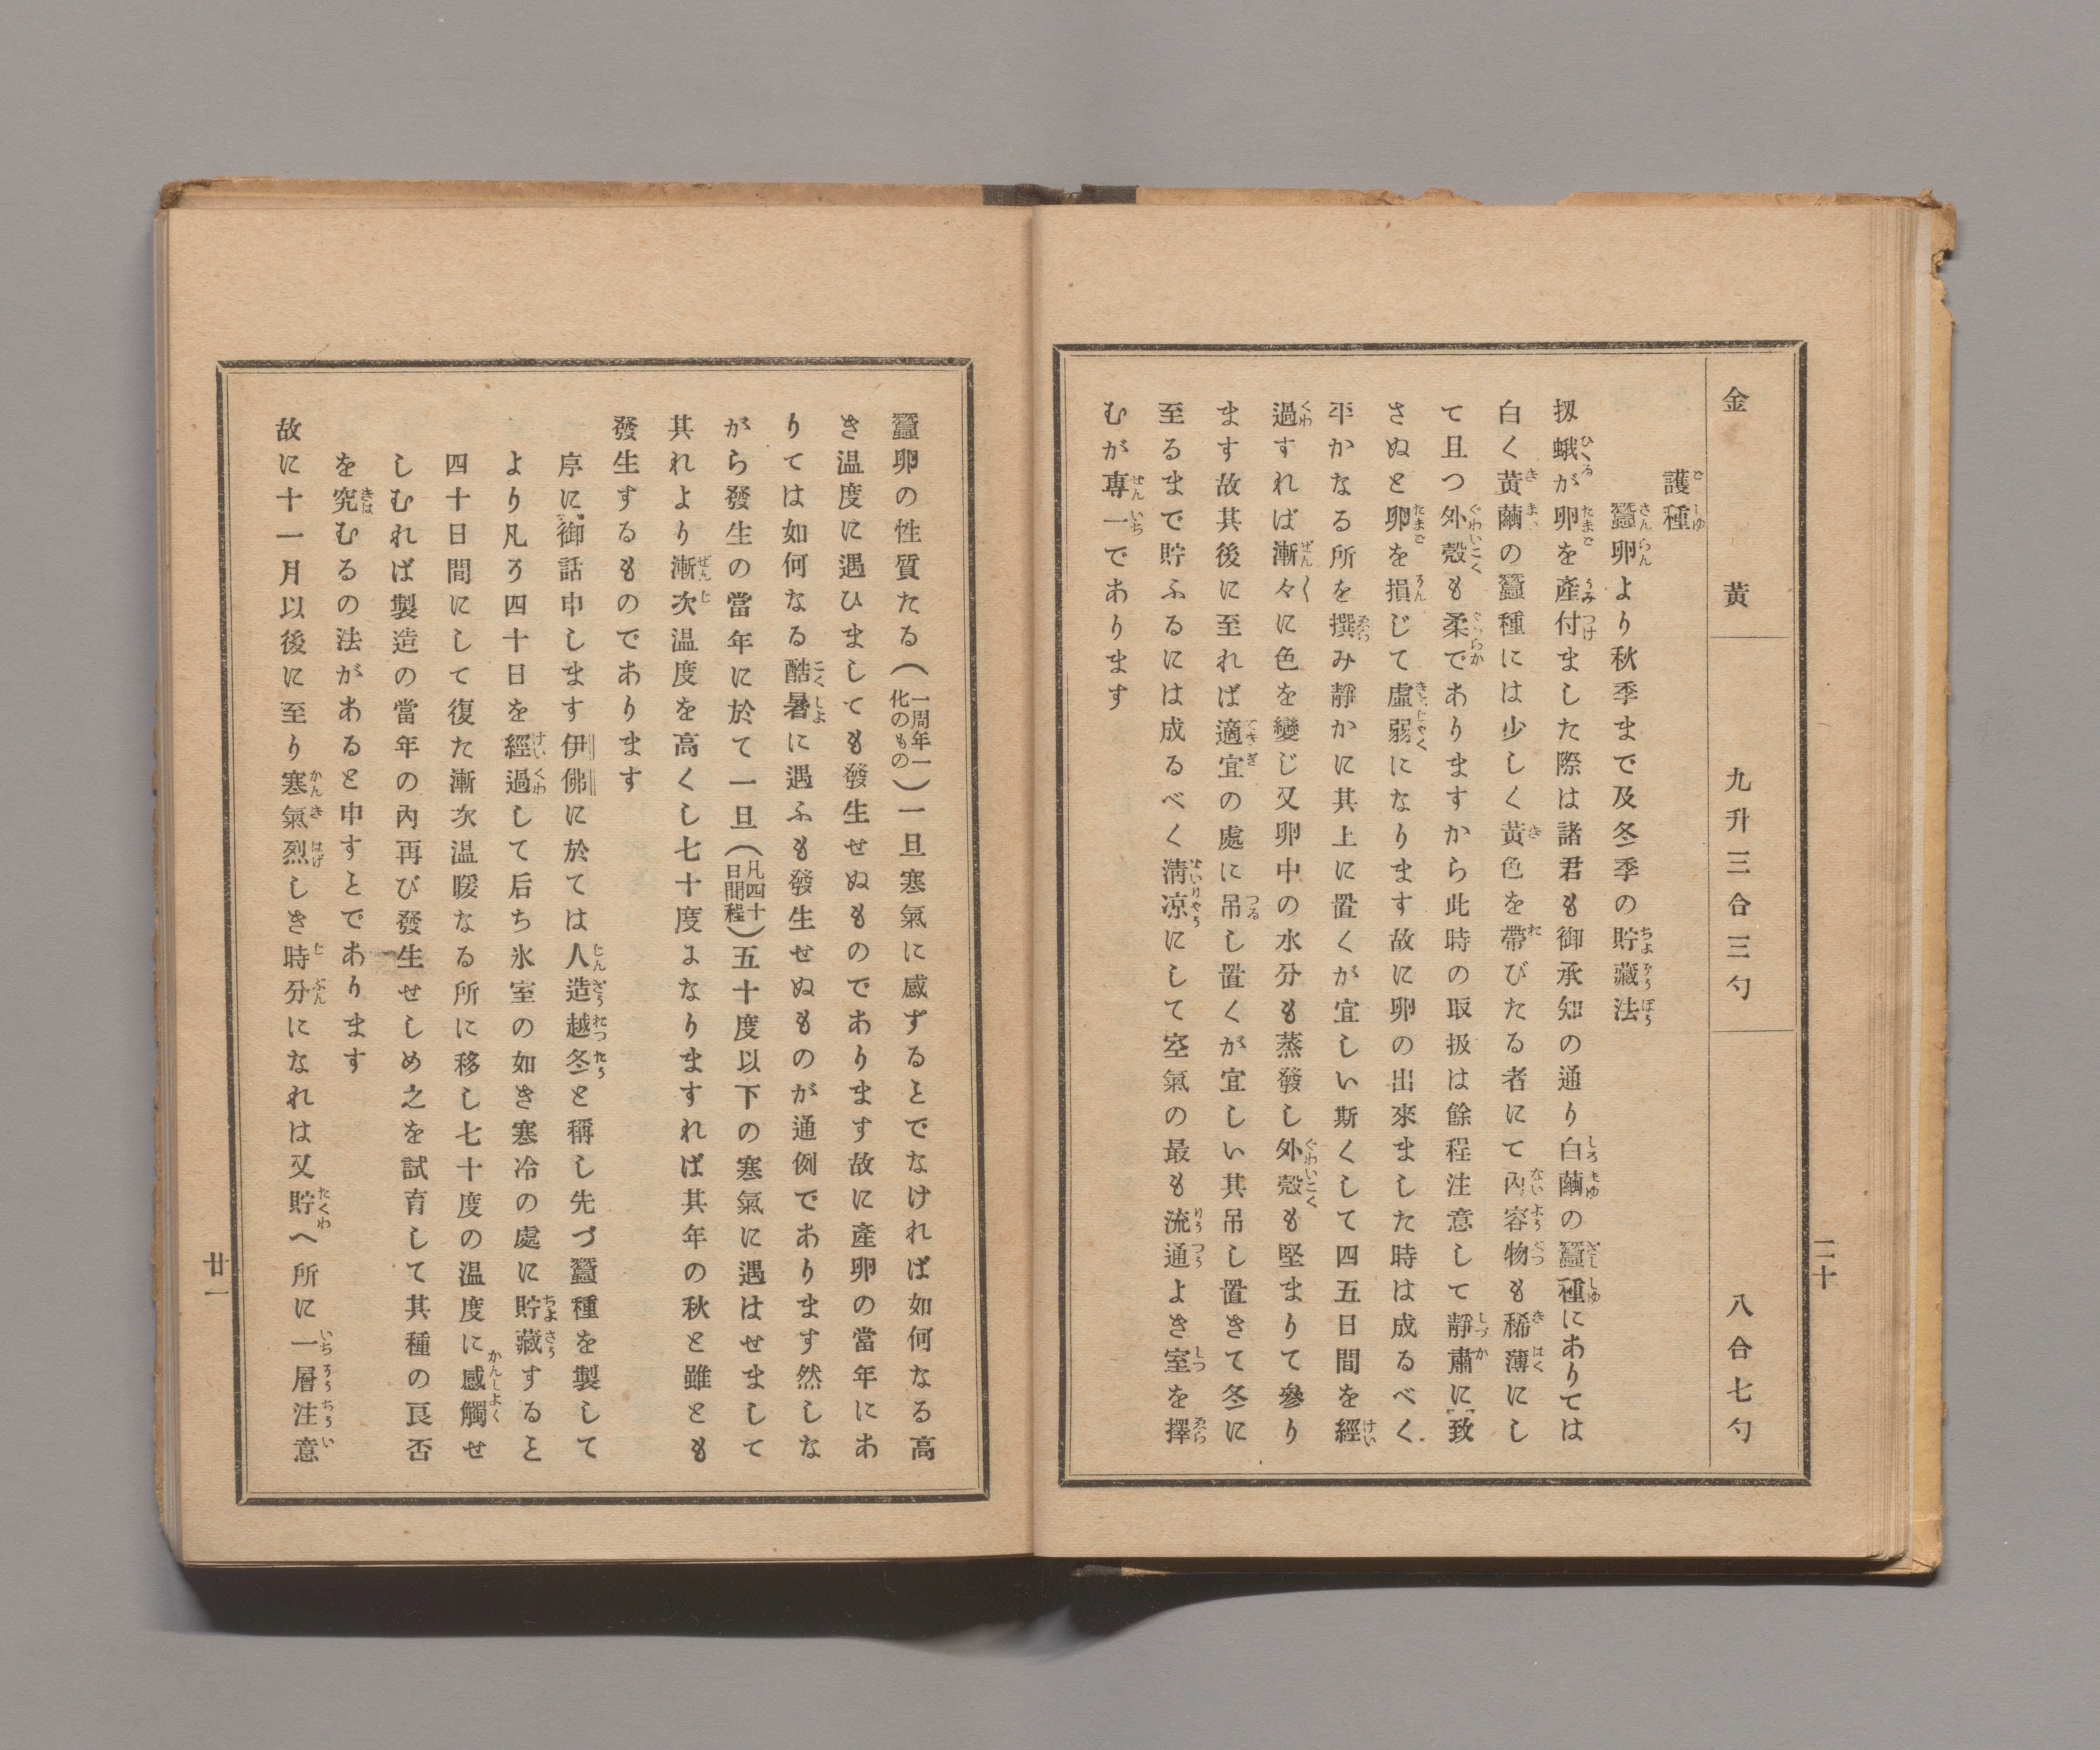 金黃 九升三合三勺 八合七勺
護種
蠶卵より秋季まで及冬季の貯藏法
扨蛾が卵を產付ました際は諸君も御承知の通り白繭の蠶種にありては
白く黃繭の蠶種には少しく黃色を帶びたる者にて內容物も稀薄にし
て且つ外殼も柔でありますから此時の取扱は餘程注意して靜肅に致
さぬと卵を損じて虛弱になります故に卵の出來ました時は成るべく
平かなる所を撰み靜かに其上に置くが宜しい斯くして四五日間を經
過すれば漸々に色を變じ又卵中の水分も蒸發し外殼も堅まりて參り
ます故其後に至れば適宜の處に吊し置くが宜しい其吊し置きて冬に
至るまで貯ふるには成るべく淸凉にして空氣の最も流通よき室を擇
むが專一であります
二十
蠶卵の性質たる(一周年一化のもの)一旦寒氣に感ずるとでなければ如何なる高
き温度に遇ひましても發生せぬものであります故に產卵の當年にあ
りては如何なる酷暑に遇ふも發生せぬものが通例であります然しな
がら發生の當年に於て一旦(凡四十日間程)五十度以下の寒氣に遇はせまして
其れより漸次温度を高くし七十度よなりますれば其年の秋と雖とも
發生するものであります
序に御話申します伊佛に於ては人造越冬と稱し先づ蠶種を製して
より凡ろ四十日を經過して后ち氷室の如き寒冷の處に貯藏すると
四十日間にして復た漸次温暖なる所に移し七十度の温度に感觸せ
しむれば製造の當年の內再び發生せしめ之を試育して其種の良否
を究むるの法があると申すとであります
故に十一月以後に至り寒氣烈しき時分になれは又貯へ所に一層注意
廿一